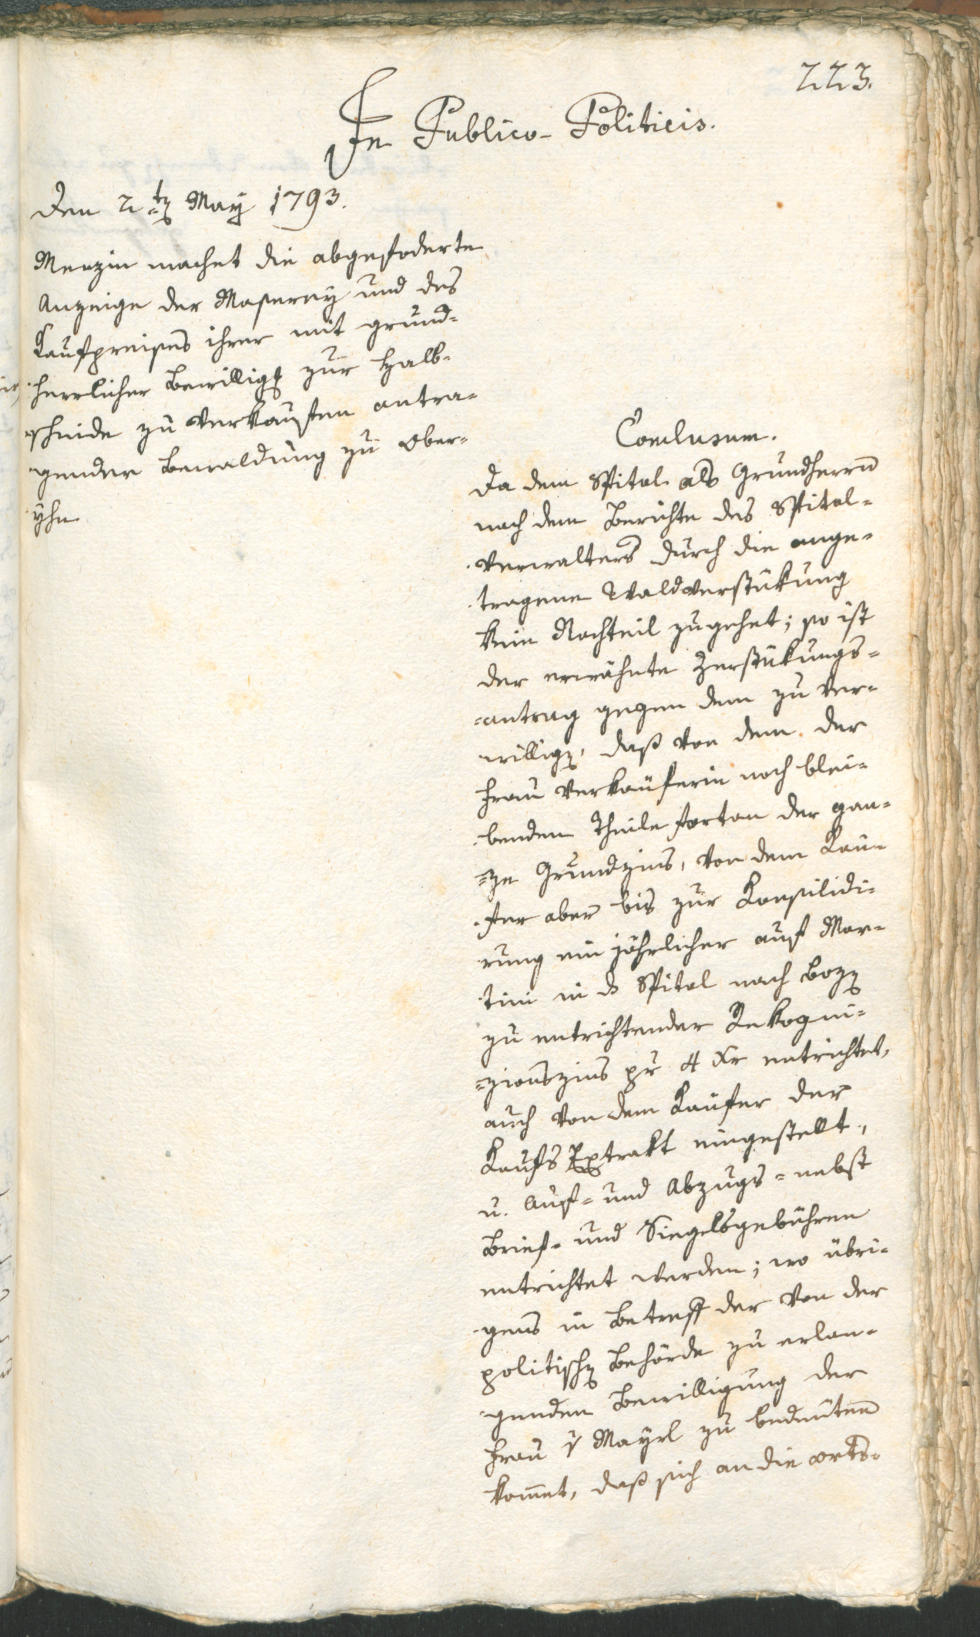 223.
In Publico-Politicis.
Den 2ten May 1793.
machet die abgefoderte
Anzeige der und des
Kaufpreises ihrer mit grund-
herrlicher Bewilligg zur Halb-
scheide zu verkaufen antra-
genden Bewaldung zu Ober-
Conclusum.
Da dem Spital als Grundherrn
nach dem Berichte des Spital-
verwalters durch die ange-
tragene Waldverstükung
kein Nachteil zugehet; so ist
der erwähnte Zerstükungs-
-antrag gegen dem zu ver-
willigen, daß von dem der
Frau Verkäuferin noch blei-
benden Theile fortan der gan-
-ze Grundzins, von dem Käu-
fer aber bis zur Konsilidi-
rung ein jährlicher auf Mar-
tini in d Spital nach Bozen
zu entrichtender Rekogni-
-zionszins pr 4 Xr entrichtet,
auch von dem Käufer der
Kaufs Extrakt eingestellt,
u. Auf- und Abzugs- nebst
Brief- und Siegelsgebühren
entrichtet werden; wo übri-
gens in Betreff der von der
politischen Behörde zu erlan-
genden Bewilligung der
Frau v Mayrl zu bedeuten
kommet, daß sich an die orts-